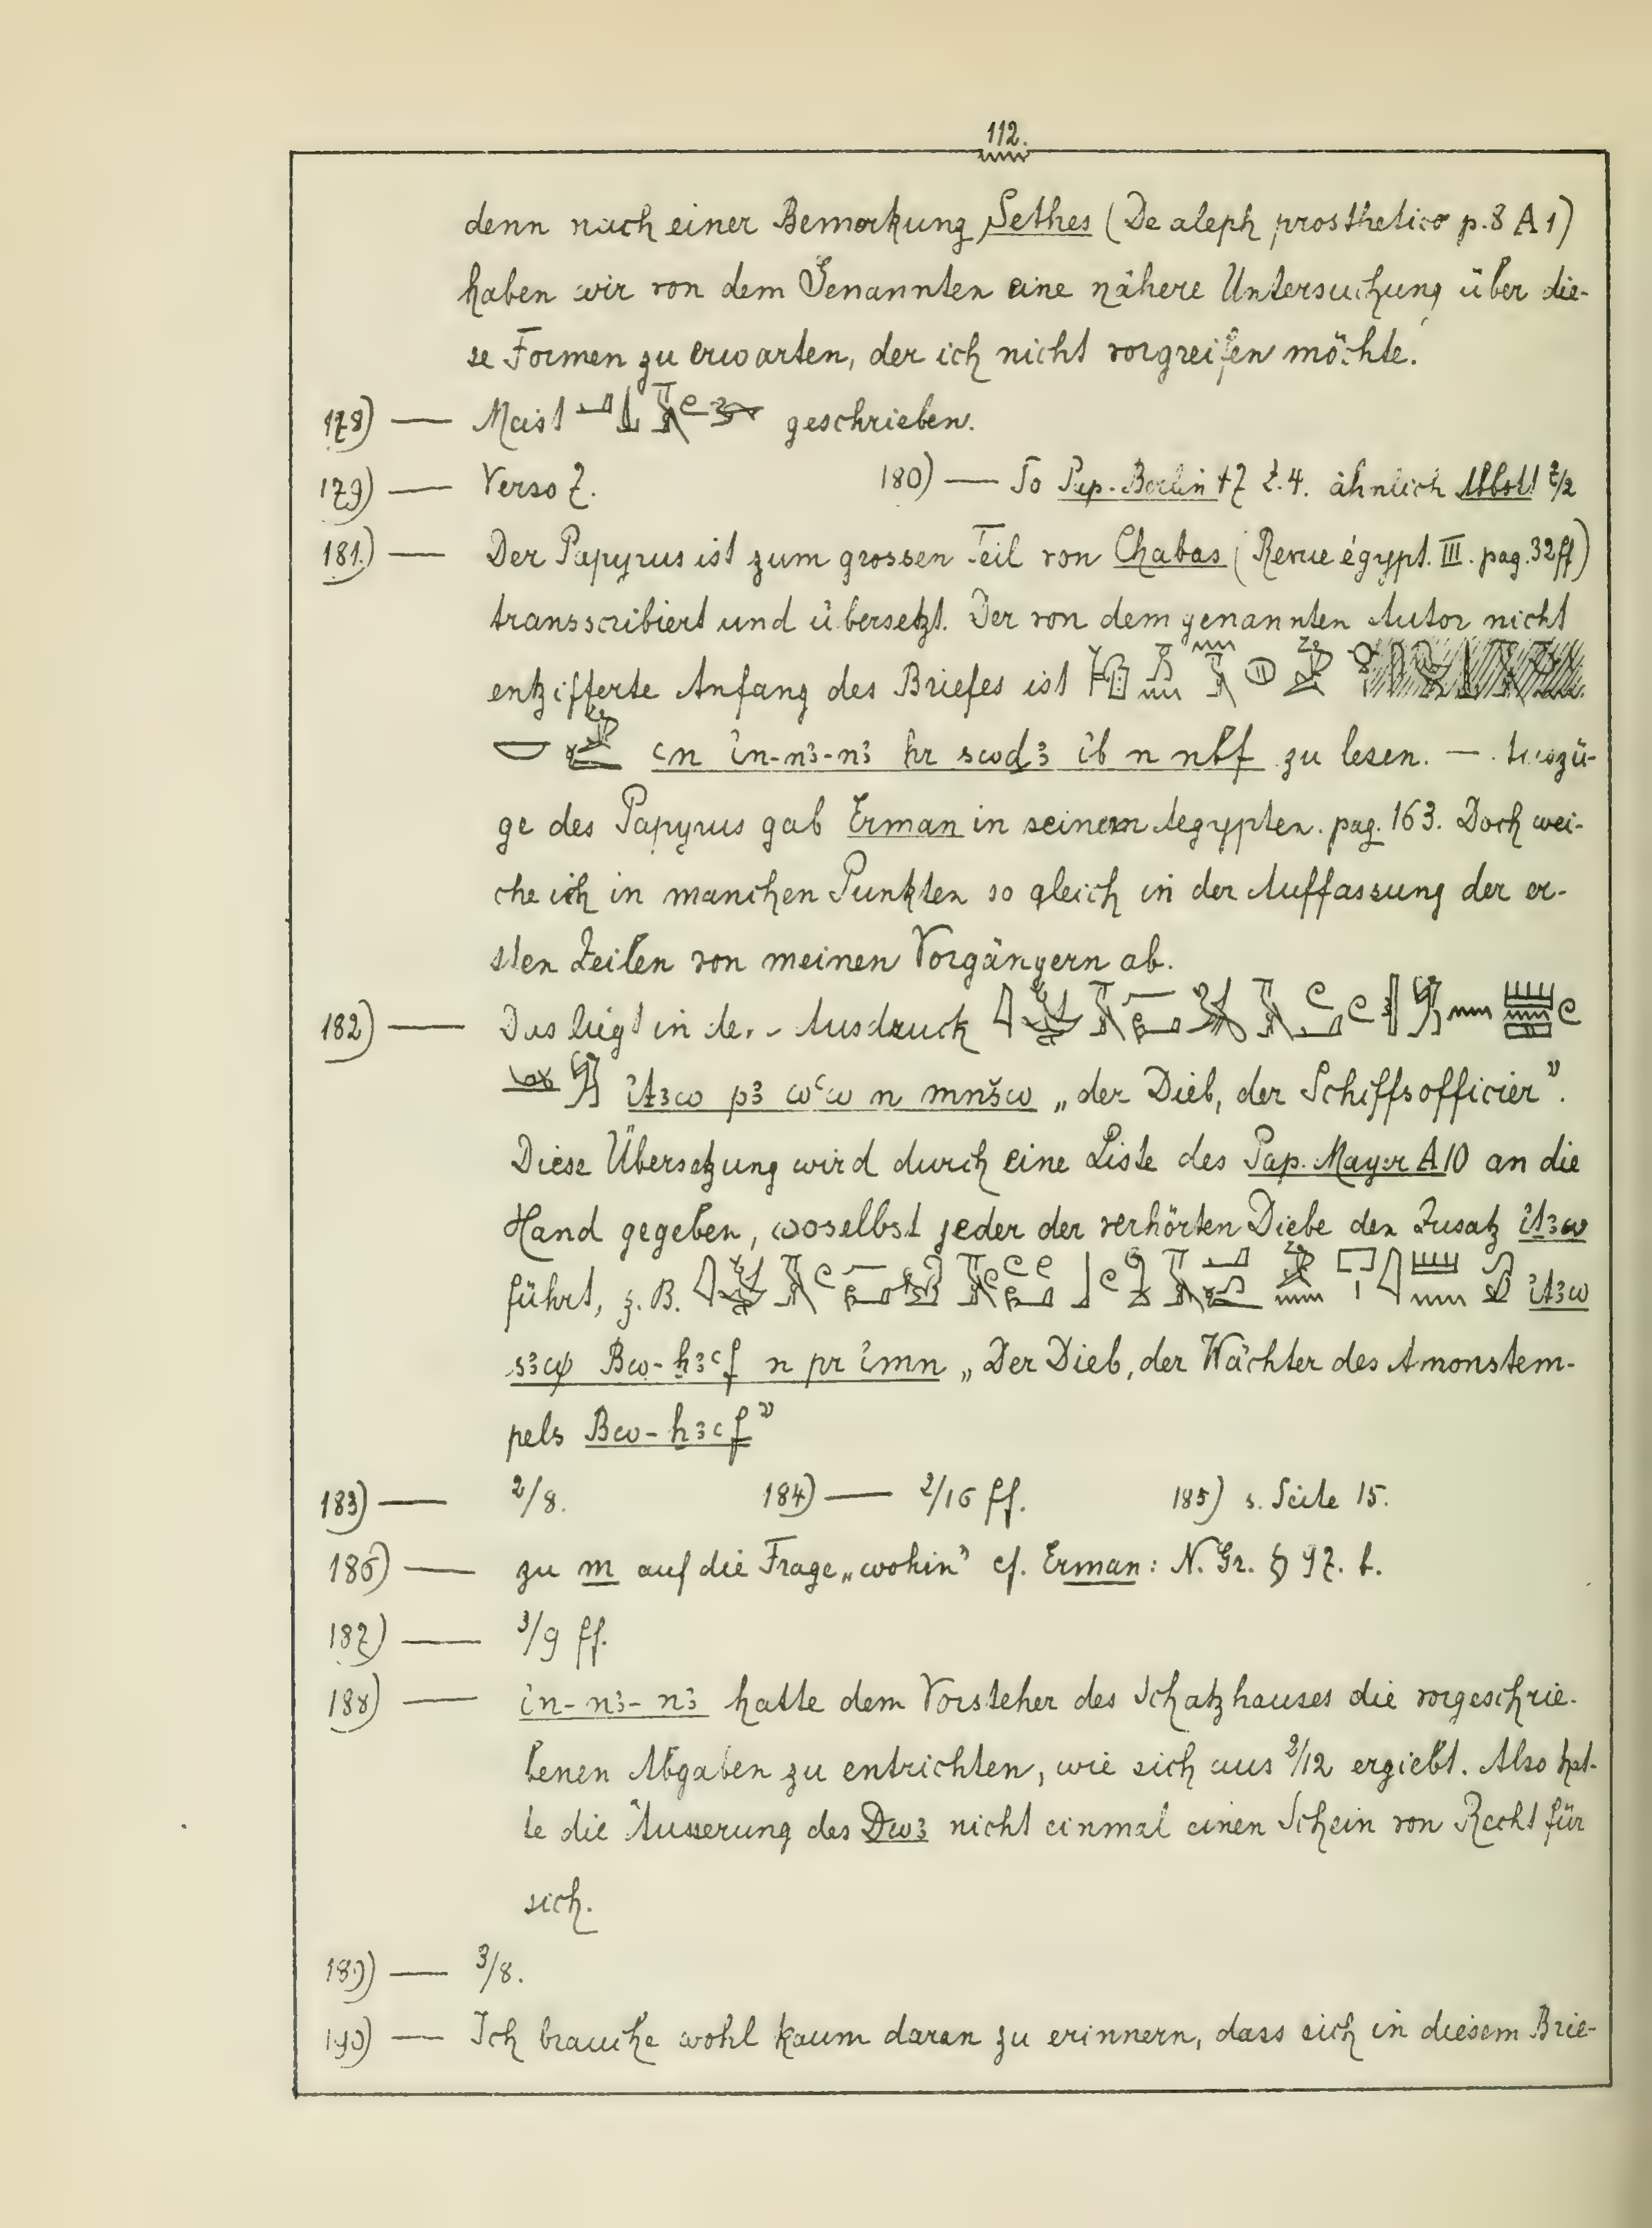 112.
denn nach einer Bemerkung Sethes (De aleph prosthetico p. 8 A 1)
haben wir von dem Genannten eine nähere Untersuchung über die-
se Formen zu erwarten, der ich nicht vorgreifen möchte.
178) — Meist geschrieben.
179) — Verso 7. 180) — So Pap. Berlin 47 Z. 4. ähnlich Abbott 7/2
181.) — Der Papyrus ist zum grossen Teil von Chabas (Revue égypt. III. pag. 32 ff)
transscribiert und übersetzt. Der von dem genannten Autor nicht
entzifferte Anfang des Briefes ist
ꜥn i̓n-nꜣ-nꜣ hr swdꜣ i̓b n nbf zu lesen. — Auszü-
ge des Papyrus gab Erman in seinem Aegypten. pag. 163. Doch wei-
che ich in manchen Punkten so gleich in der Auffassung der er-
sten Zeilen von meinen Vorgängern ab.
182) — Das liegt in Ausdruck
i̓tꜣw pꜣ wꜥw n mnšw „der Dieb, der Schiffsofficier”.
Diese Übersetzung wird durch eine Liste des Pap. Mayer A 10 an die
Hand gegeben, woselbst jeder der verhörten Diebe den Zusatz i̓tꜣw
führt, z. B. i̓tꜣw
sꜣw Bw-ḫꜣꜥf n pr i̓mn „Der Dieb, der Wächter des Amonstem-
pels Bw-ḫꜣꜥf”
183) — 2/8. 184) — 2/16 ff. 185) s. Seite 15.
186) — zu m auf die Frage „wohin” cf. Erman: N. Gr. § 97. b.
187) — 3/9 ff.
188) — i̓n-nꜣ-nꜣ hatte dem Vorsteher des Schatzhauses die vorgeschrie-
benen Abgaben zu entrichten, wie sich aus 2/12 ergiebt. Also hat-
te die Äusserung des Dwꜣ nicht einmal einen Schein von Recht für
sich.
189) — 3/8.
190) — Ich brauche wohl kaum daran zu erinnern, dass sich in diesem Brie-